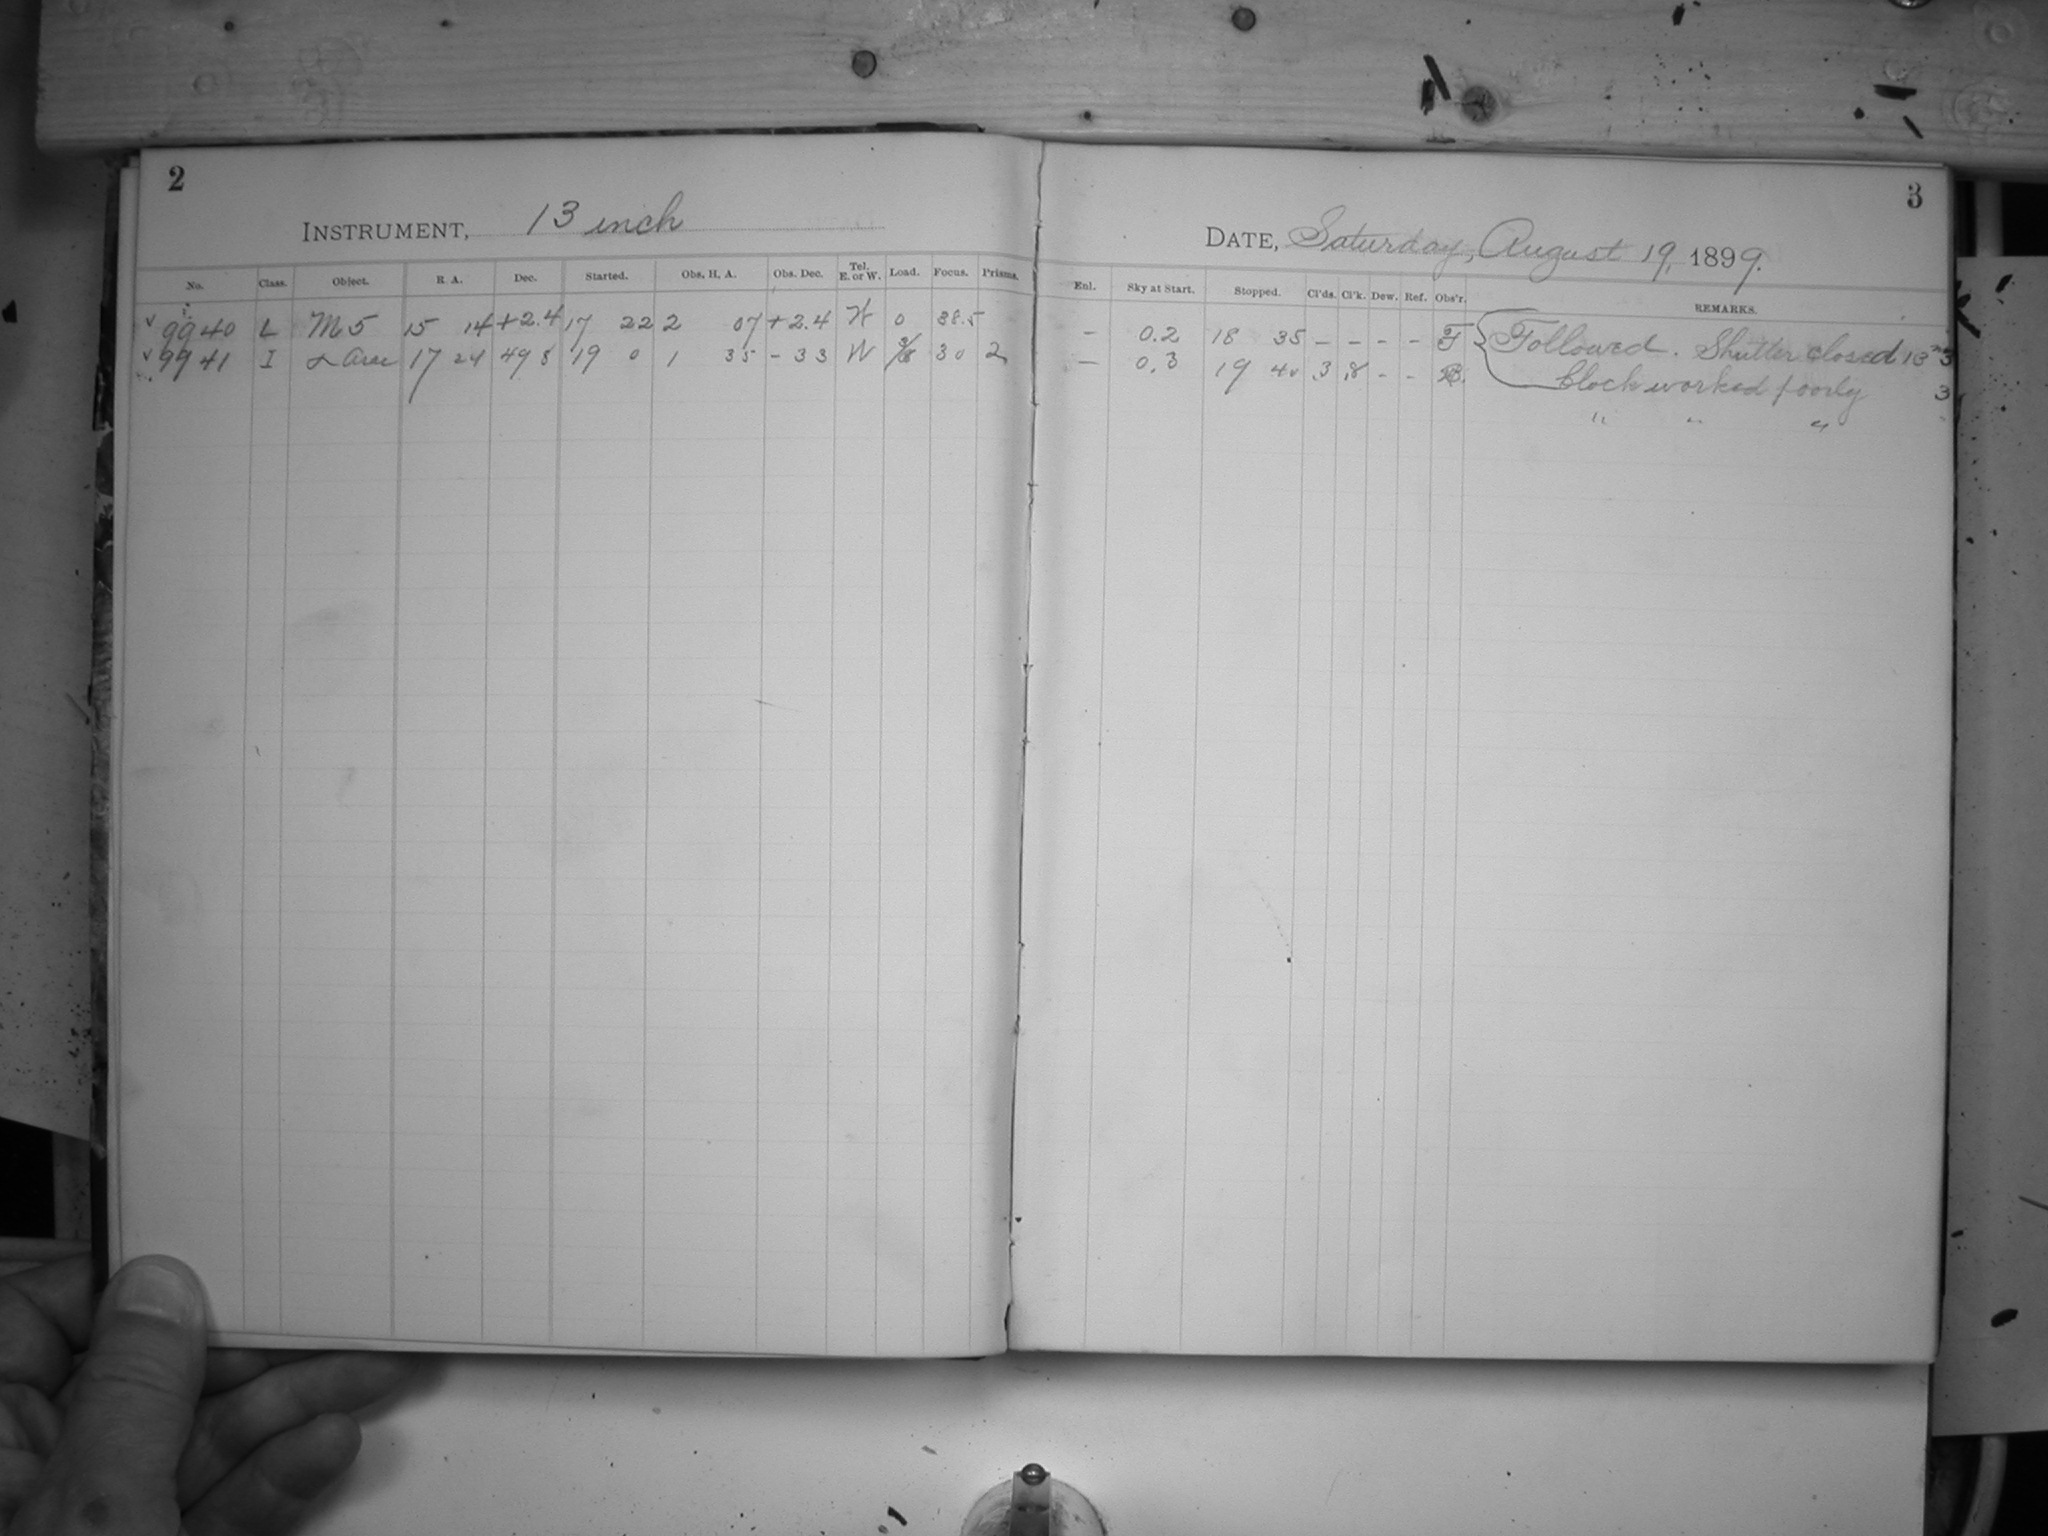 2
INSTRUMENT, 13 inch
No. Class. Object. R. A. Dec. Started. Obs. H. A. Obs. Dec. Tel. E. or W. Load. Focus. Prisms.
9940 L M 5 15 14 +2.4 17 22 2 07 +2.4 W 0 38.5
9941 I α Arae 17 24 49 8 19 0 1 35 -33 W 30 2
3
DATE, Saturday, August 19, 1899.
Enl. Sky at Start. Stopped. Cl'ds. Cl'k. Dew. Ref. Obs'r. REMARKS.
- 0.2 18 35 - - - - F Followed. Shutter closed 13m 3
- 0.3 19 40 .3 .8 - - B. Clock worked poorly 3
" " "